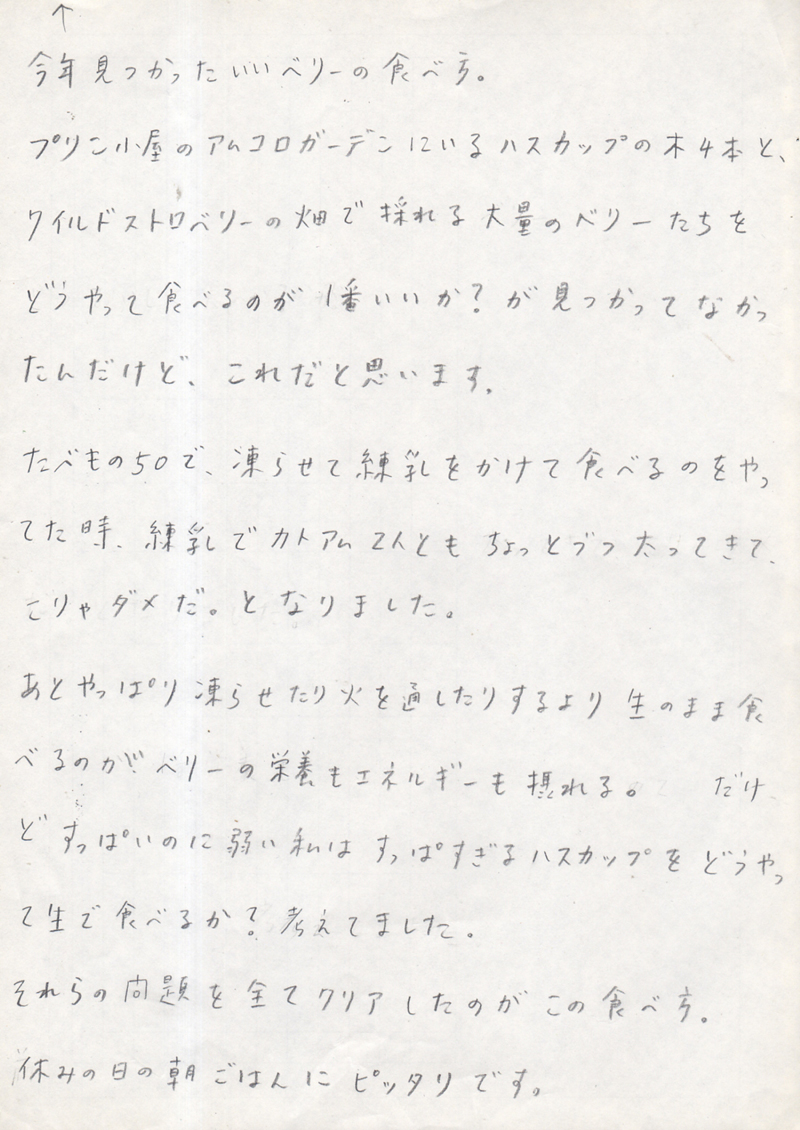 ↑
今年見つかったいいベリーの食べ方。
プリン小屋のアムコロガーデンにいるハスカップの木4本と、
ワイルドストロベリーの畑で採れる大量のベリーたちを
どうやって食べるのが1番いいか?が見つかってなかっ
たんだけど、これだと思います。
たべもの50で、凍らせて練乳をかけて食べるのをやっ
てた時、練乳でカトアム2人ともちょっとづつ太ってきて、
こりゃダメだ。となりました。
あとやっぱり凍らせたり火を通したりするより生のまま食
べるのがベリーの栄養もエネルギーも摂れる。 だけ
どすっぱいのに弱い私はすっぱすぎるハスカップをどうやっ
て生で食べるか?考えてました。
それらの問題を全てクリアしたのがこの食べ方。
休みの日の朝ごはんにピッタリです。